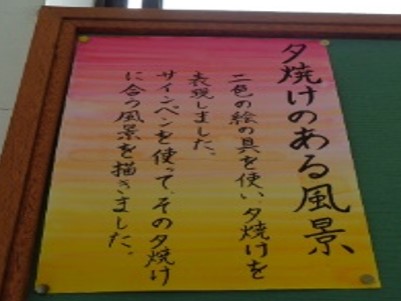 夕焼けのある風景
二色の絵の具を使い、夕焼けを
表現しました。
サインペンを使って、その夕焼け
に合う風景を描きました。